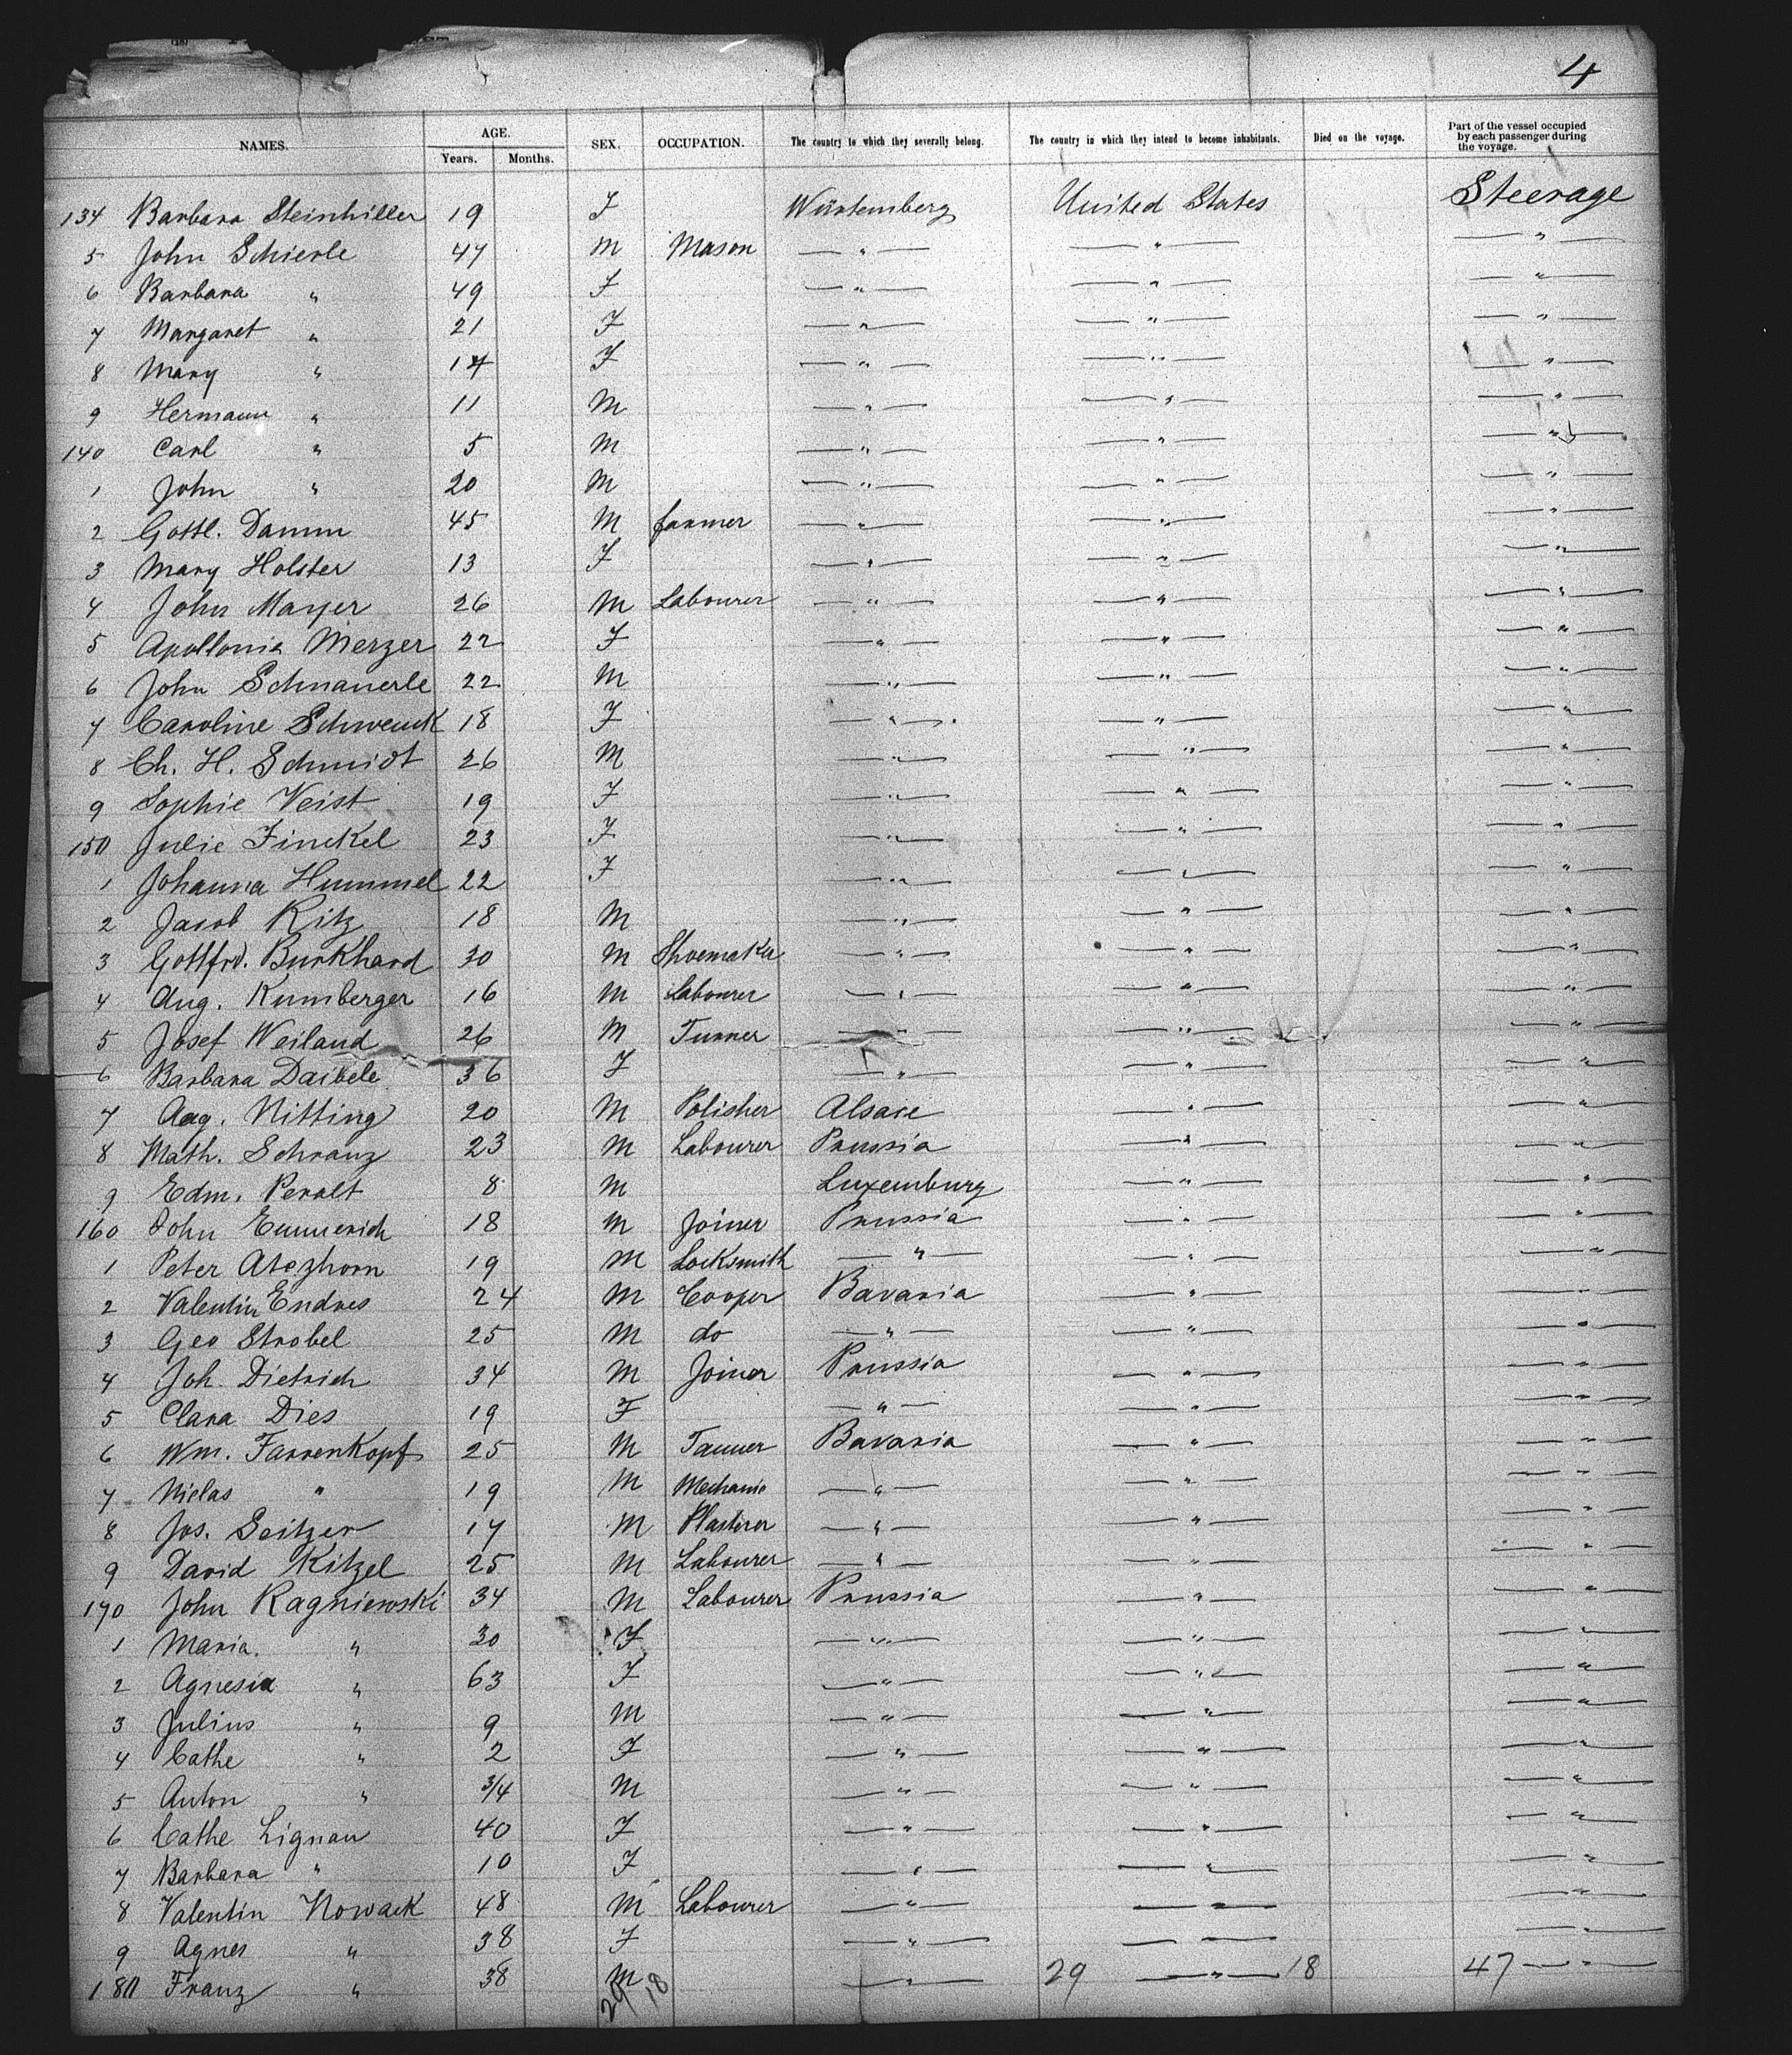 4
NAMES. AGE. Years. Months. SEX. OCCUPATION. The country to which they severally belong. The country in which they intend to become inhabitants. Died on the voyage. Part of the vessel occupied by each passenger during the voyage.
134 Barbara Steinhiller 19 F Würtemberg United States Steerage
5 John Schierle 47 M Mason — " — — " — — " —
6 Barbara " 49 F — " — — " — — " —
7 Margaret " 21 F — " — — " — — " —
8 Mary " 14 F — " — — " — — " —
9 Hermann " 11 M — " — — " — — " —
140 Carl " 5 M — " — — " — — " —
1 John " 20 M — " — — " — — " —
2 Gottl. Damm 45 M farmer — " — — " — — " —
3 Mary Holster 13 F — " — — " — — " —
4 John Mayer 26 M Labourer — " — — " — — " —
5 Apollonia Merzer 22 F — " — — " — — " —
6 John Schnauerle 22 M — " — — " — — " —
7 Caroline Schwenck 18 F — " — — " — — " —
8 Ch. H. Schmidt 26 M — " — — " — — " —
9 Sophie Veist 19 F — " — — " — — " —
150 Julie Finckel 23 F — " — — " — — " —
1 Johanna Hummel 22 F — " — — " — — " —
2 Jacob Kitz 18 M — " — — " — — " —
3 Gottfrd. Burkhard 30 M Shoemaker — " — — " — — " —
4 Aug. Kumberger 16 M Labourer — " — — " — — " —
5 Josef Weiland 26 M Turner — " — — " — — " —
6 Barbara Daibele 36 F — " — — " — — " —
7 Aug. Nitting 20 M Polisher Alsace — " — — " —
8 Math. Schranz 23 M Labourer Prussia — " — — " —
9 Edm. Peralt 8 M Luxemburg — " — — " —
160 John Emmerich 18 M Joiner Prussia — " — — " —
1 Peter Atezhorn 19 M Locksmith — " — — " — — " —
2 Valentin Endres 24 M Cooper Bavaria — " — — " —
3 Geo Strobel 25 M do — " — — " — — " —
4 Joh. Dietrich 34 M Joiner Prussia — " — — " —
5 Clara Dies 19 F — " — — " — — " —
6 Wm. Farrenkopf 25 M Tanner Bavaria — " — — " —
7 Niclas " 19 M Mechanic — " — — " — — " —
8 Jos. Seitzer 17 M Plasterer — " — — " — — " —
9 David Kitzel 25 M Labourer — " — — " — — " —
170 John Ragniewski 34 M Labourer Prussia — " — — " —
1 Maria. " 30 F — " — — " — — " —
2 Agnesia " 63 F — " — — " — — " —
3 Julius " 9 M — " — — " — — " —
4 Cathe " 2 F — " — — " — — " —
5 Anton " 3/4 M — " — — " — — " —
6 Cathe Lignau 40 F — " — — " — — " —
7 Barbara " 10 F — " — — " — — " —
8 Valentin Nowack 48 M Labourer — " — — " — — " —
9 Agnes " 38 F — " — — " — — " —
180 Franz " 38 M — " — 29 — " — 18 47 — " —
29 18